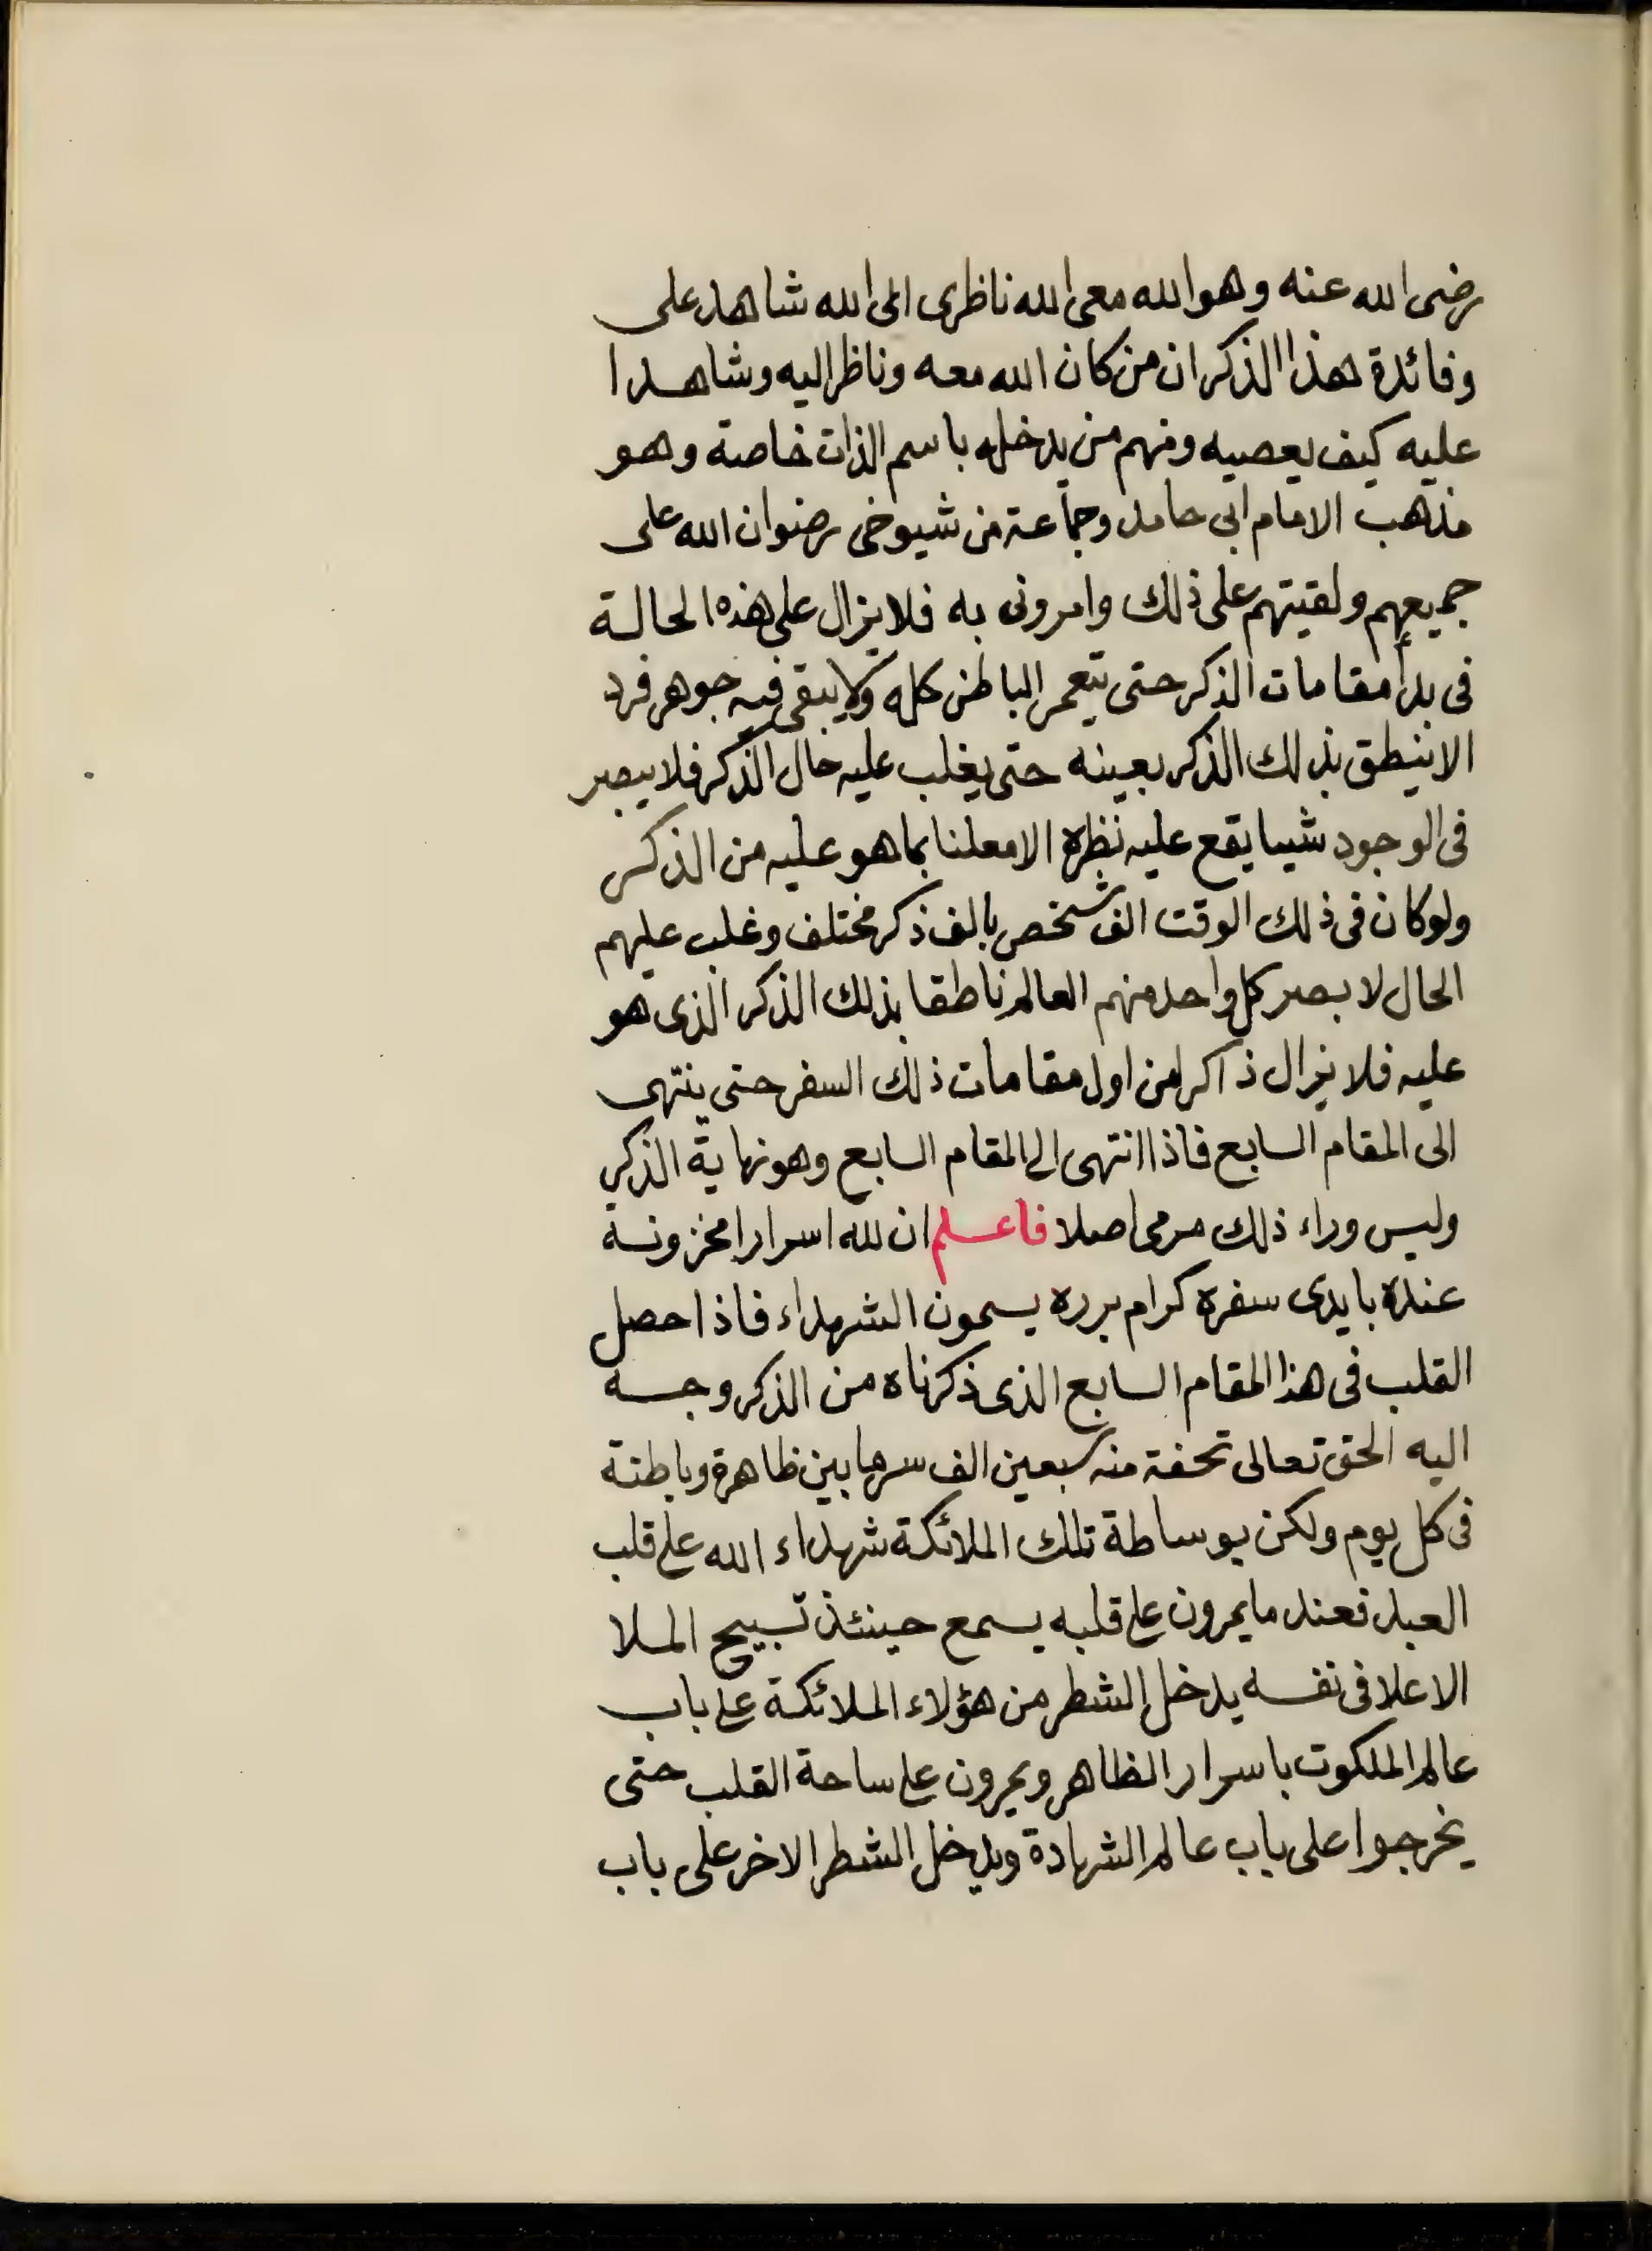 رضى الله عنه وهو الله معى الله ناظرى الى الله شاهد على
وفائدة هذا الذكر ان من كان الله معه وناظر اليه وشاهدا
عليه كيف يعصيه ومنهم من يدخله باسم الذات خاصة وهو
مذهب الامام ابى حامد وجماعة من شيوخى رضوان الله على
جميعهم ولقيتهم على ذلك وامرونى به فلا يزال على هذه الحالة
فى بدأ مقامات الذكر حتى يتعمر الباطن كله ولا يبقى فيه جوهر فرد
الا ينطق بذلك الذكر بعينه حتى يغلب عليه حال الذكر فلا يبصر
فى الوجود شيا يقع عليه نظره الا معلنا بما هو عليه من الذكر
ولو كان فى ذلك الوقت الف شخص بالف ذكر مختلف وغلب عليهم
الحال لا بصر كل واحد منهم العالم ناطقا بذلك الذكر الذى هو
عليه فلا يزال ذاكرا من اول مقامات ذلك السفر حتى ينتهى
الى المقام السابع فاذا انتهى الى المقام السابع وهو نهاية الذكر
وليس وراء ذلك مرمى اصلا فاعلم ان لله اسرارا مخزونة
عنده بايدى سفرة كرام برره يسمون الشهداء فاذا حصل
القلب فى هذا المقام السابع الذى ذكرناه من الذكر وجه
اليه الحق تعالى تحفة منه سبعين الف سر ما بين ظاهرة وباطنة
فى كل يوم ولكن بوساطة تلك الملائكة شهداء الله على قلب
العبد فعند ما يمرون على قلبه يسمع حينئذ تسبيح الملا
الاعلا فى نفسه يدخل الشطر من هؤلاء الملائكة على باب
عالم الملكوت باسرار الظاهر ويمرون على ساحة القلب حتى
يخرجوا على باب عالم الشهادة ويدخل الشطر الاخر على باب